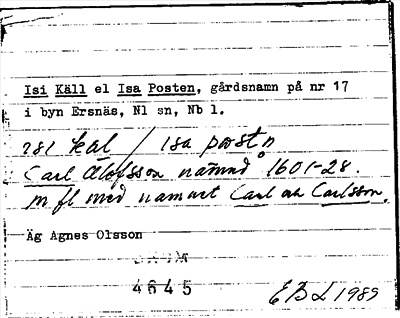 Isi Käll el Isa Posten, gårdsnamn på nr 17
i byn Ersnäs, Nl sn, Nb l.
ɿsı käl / ısa postṇ
Carl Olofsson nämnd 1601-28.
m fl med namnet Carl och Carlsson.
Äg Agnes Olsson
4645
EBL 1989